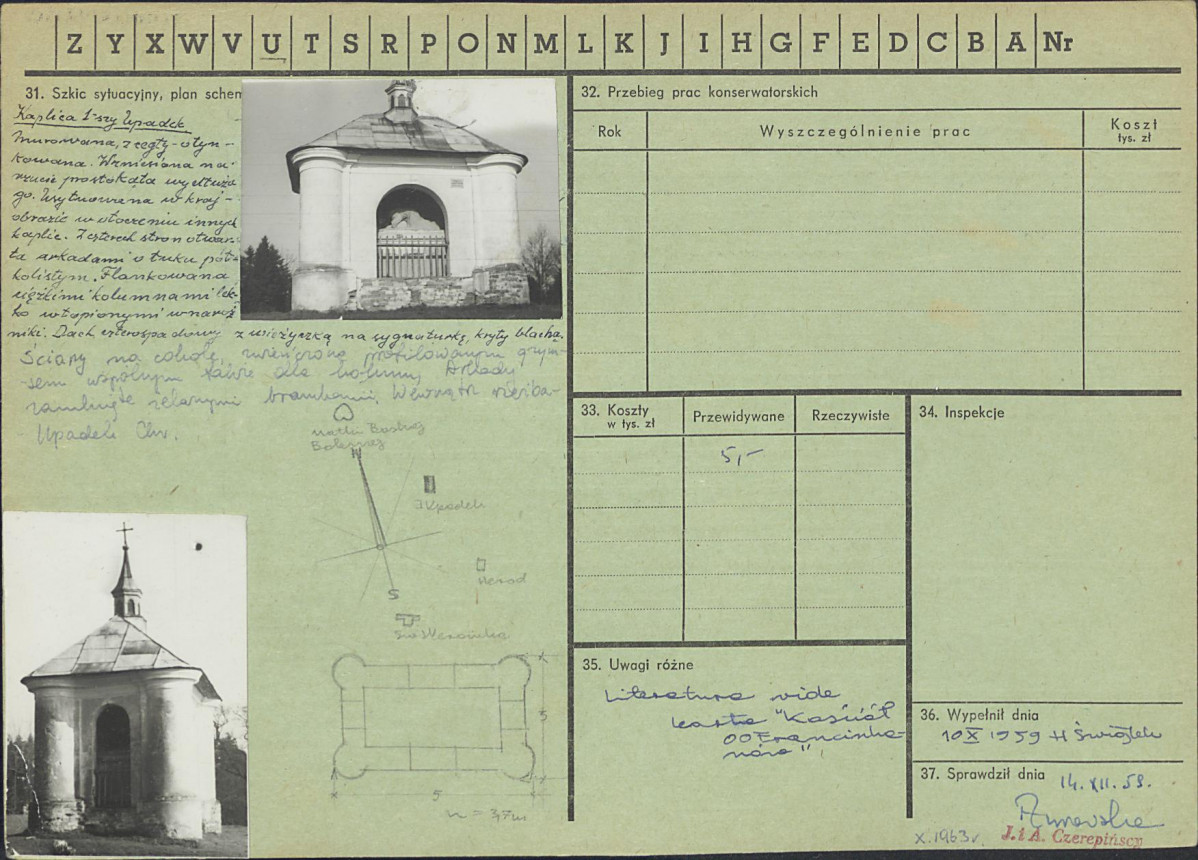 Z Y X W V U T S R P O N M L K J I H G F E D C B A Nr
31. Szkic sytuacyjny, plan schem
Kaplica I-szy Upadek
Murowana, z cegły - otyn-
kowana. Wzniesiona na
rzucie prostokąta wydłużo
go. Usytuowana w kraj-
obrazie w otoczeniu innych
kaplic. Z czterech stron otwar-
ta arkadami o łuku pół-
kolistym. Flankowana
ciężkimi kolumnami lek-
ko wtopionymi w naroż
niki. Dach czterospadowy z wieżyczką na sygnaturkę, kryty blachą.
Ściany na cokole, zwieńczone profilowanym gzym-
sem wspólnym także dla kolumn, Arkady
zamknięte żelaznymi bramkami, Wewnątrz rzeźba-
Upadek Chr.
Matki Boskiej
Bolesnej
N
I Upadek
Herod
S
Św. Weronika
5
5
h = 3,7m
32. Przebieg prac konserwatorskich
Rok
Wyszczególnienie prac
Koszt
tys. zł
33. Koszty
w tys. zł
Przewidywane
Rzeczywiste
5,-
34. Inspekcje
35. Uwagi różne
Literatura vide
karta "Kościół
OO Franciszka-
nów"
36. Wypełnił dnia
10 X 1959 H Świątek
37. Sprawdził dnia
14.XII.59.
X.1963 r.
J. i A. Czerepińscy